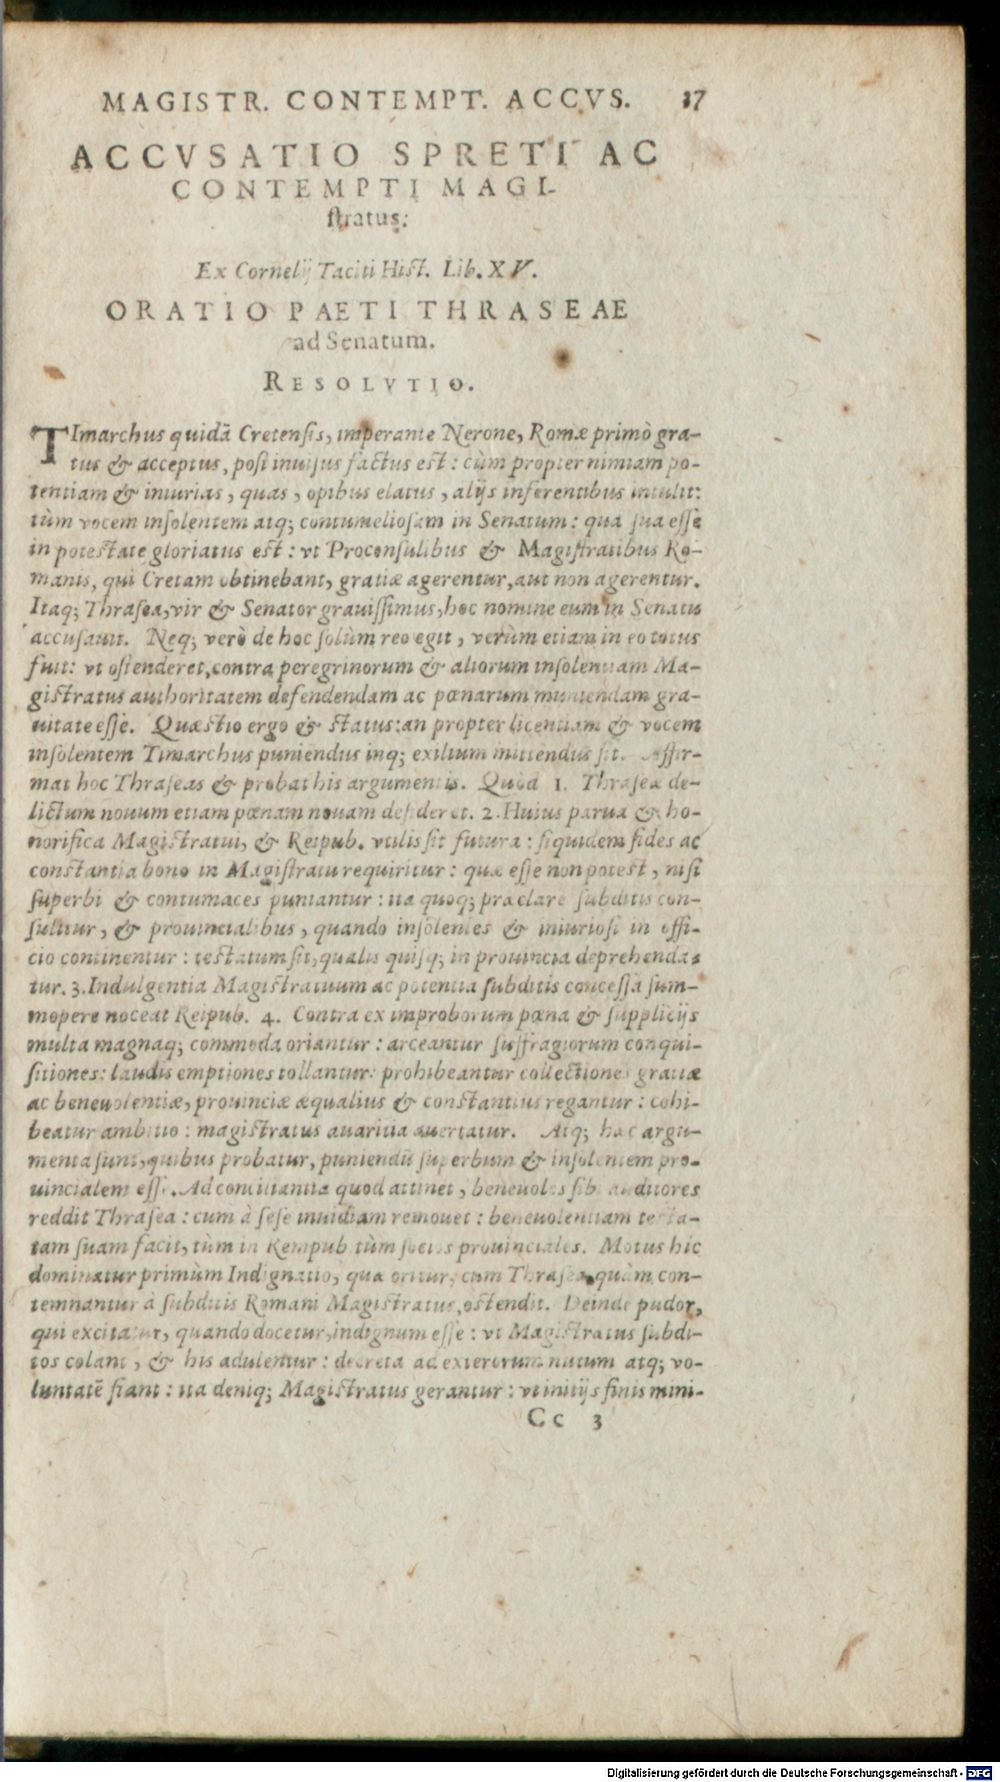 MAGISTR. CONTEMPT. ACCVS. 37
ACCVSATIO SPRETI AC
CONTEMPTI MAGI-
ſtratus:
Ex Cornelij Taciti Hiſt. Lib. XV.
ORATIO PAETI THRASEAE
ad Senatum.
RESOLVTIO.
TImarchus quidā Cretenſis, imperante Nerone, Romæ primò gra-
tus & acceptus, poſt inuiſus factus eſt: cùm propter nimiam po-
tentiam & iniurias, quas, opibus elatus, alijs inferentibus intulit:
tùm vocem inſolentem atq; contumelioſam in Senatum: qua ſua eſſe
in poteſtate gloriatus eſt: vt Proconſulibus & Magiſtratibus Ro-
manis, qui Cretam obtinebant, gratiæ agerentur, aut non agerentur.
Itaq; Thraſea, vir & Senator grauiſſimus, hoc nomine eum in Senatu
accuſauit. Neq; verò de hoc ſolùm reo egit, verùm etiam in eo totus
fuit: vt oſtenderet, contra peregrinorum & aliorum inſolentiam Ma-
giſtratus authoritatem defendendam ac pœnarum muniendam gra-
uitate eſſe. Quæſtio ergo & ſtatus: an propter licentiam & vocem
inſolentem Timarchus puniendus inq; exilium mittendus ſit. Affir-
mat hoc Thraſeas & probat his argumentis. Quod 1. Thraſeæ de-
lictum nouum etiam pœnam nouam deſideret. 2. Huius parua & ho-
norifica Magiſtratui, & Reipub. vtilis ſit futura: ſiquidem fides ac
conſtantia bono in Magiſtratu requiritur: quæ eſſe non poteſt, niſi
ſuperbi & contumaces puniantur: ita quoq; præclare ſubditis con-
ſulitur, & prouincialibus, quando inſolentes & iniurioſi in offi-
cio continentur: teſtatum ſit, qualis quiſq; in prouincia deprehenda-
tur. 3. Indulgentia Magiſtratuum ac potentia ſubditis conceſſa ſum-
mopere noceat Reipub. 4. Contra ex improborum pœna & ſupplicijs
multa magnaq; commoda oriantur: arceantur ſuffragiorum conqui-
ſitiones: laudis emptiones tollantur: prohibeantur collectiones gratiæ
ac beneuolentiæ, prouinciæ æqualius & conſtantius regantur: cohi-
beatur ambitio: magiſtratus auaritia auertatur. Atq; hæc argu-
menta ſunt, quibus probatur, puniendū ſuperbum & inſolentem pro-
uincialem eſſe. Ad concitantia quod attinet, beneuolos ſibi auditores
reddit Thraſea: cum à ſeſe inuidiam remouet: beneuolentiam teſta-
tam ſuam facit, tùm in Rempub. tùm ſocios prouinciales. Motus hic
dominatur primùm Indignatio, quæ oritur, cum Thraſea, quàm con-
temnantur à ſubditis Romani Magiſtratus, oſtendit. Deinde pudor,
qui excitatur, quando docetur, indignum eſſe: vt Magiſtratus ſubdi-
tos colant, & his adulentur: decreta ad exterorum nutum atq; vo-
luntatē fiant: ita deniq; Magiſtratus gerantur: vt initijs finis mini-
Cc 3
Digitalisierung gefördert durch die Deutsche Forschungsgemeinschaft - DFG